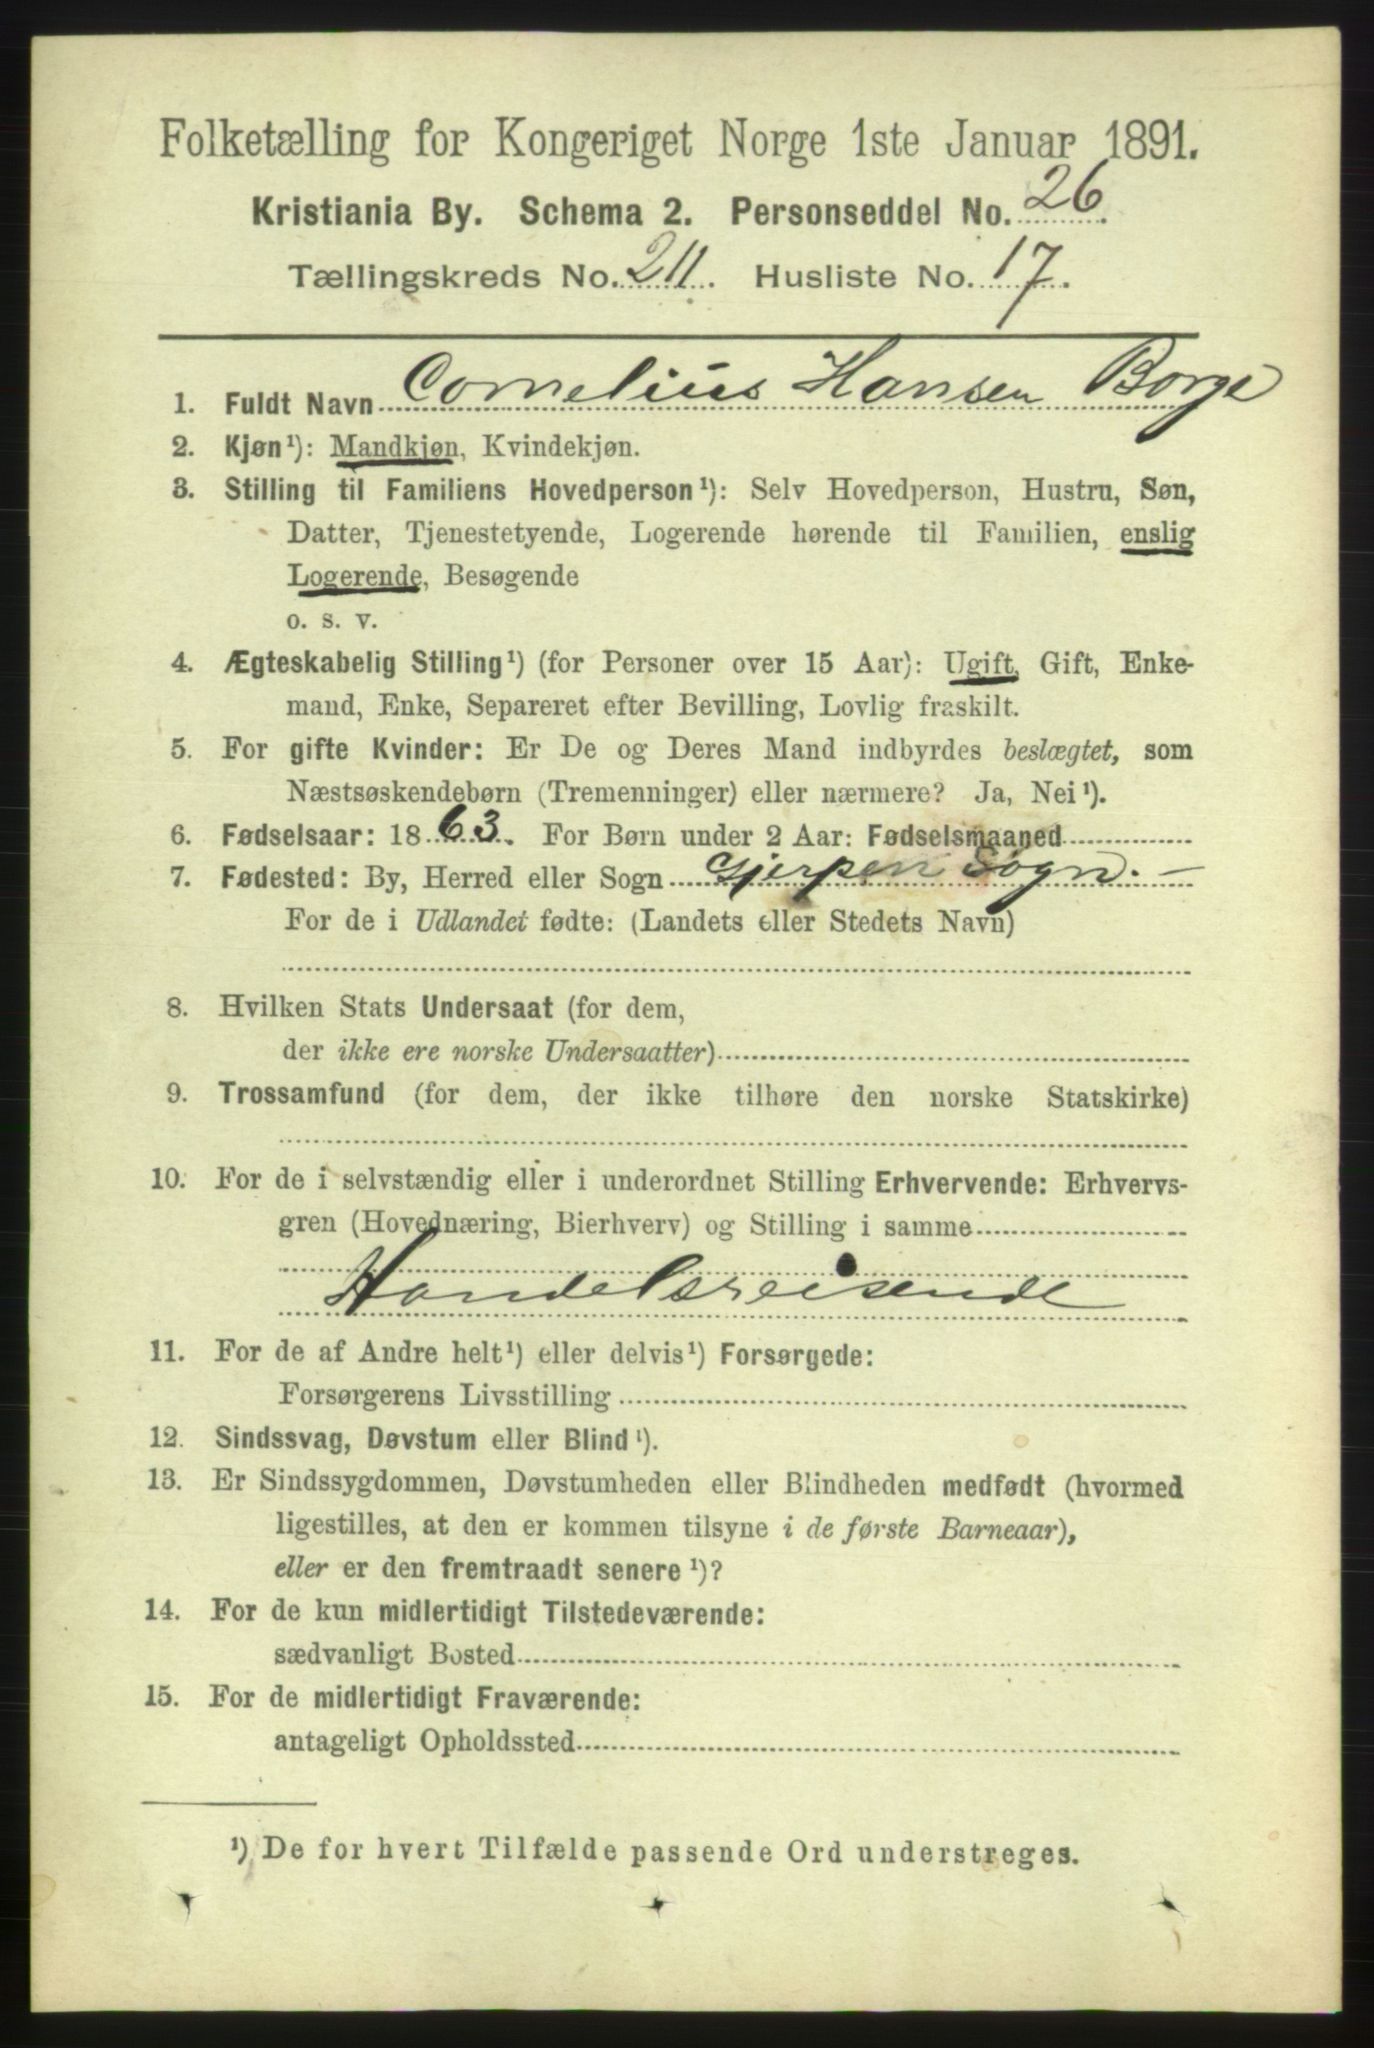 Folketælling for Kongeriget Norge 1ste Januar 1891.
Kristiania By. Schema 2. Personseddel No. 26.
Tællingskreds No. 211. Husliste No. 17.
1. Fuldt Navn Cornelius Hansen Borge
2. Kjøn¹): Mandkjøn, Kvindekjøn.
3. Stilling til Familiens Hovedperson¹): Selv Hovedperson, Hustru, Søn,
Datter, Tjenestetyende, Logerende hørende til Familien, enslig
Logerende, Besøgende
o. s. v.
4. Ægteskabelig Stilling¹) (for Personer over 15 Aar): Ugift, Gift, Enke-
mand, Enke, Separeret efter Bevilling, Lovlig fraskilt.
5. For gifte Kvinder: Er De og Deres Mand indbyrdes beslægtet, som
Næstsøskendebørn (Tremenninger) eller nærmere? Ja, Nei¹).
6. Fødselsaar: 1863. For Børn under 2 Aar: Fødselsmaaned
7. Fødested: By, Herred eller Sogn Gjerpen Sogn. —
For de i Udlandet fødte: (Landets eller Stedets Navn)
8. Hvilken Stats Undersaat (for dem,
der ikke ere norske Undersaatter)
9. Trossamfund (for dem, der ikke tilhøre den norske Statskirke)
10. For de i selvstændig eller i underordnet Stilling Erhvervende: Erhvervs-
gren (Hovednæring, Bierhverv) og Stilling i samme
Handelsreisende
11. For de af Andre helt¹) eller delvis¹) Forsørgede:
Forsørgerens Livsstilling
12. Sindssvag, Døvstum eller Blind¹).
13. Er Sindssygdommen, Døvstumheden eller Blindheden medfødt (hvormed
ligestilles, at den er kommen tilsyne i de første Barneaar),
eller er den fremtraadt senere¹)?
14. For de kun midlertidigt Tilstedeværende:
sædvanligt Bosted
15. For de midlertidigt Fraværende:
antageligt Opholdssted
¹) De for hvert Tilfælde passende Ord understreges.